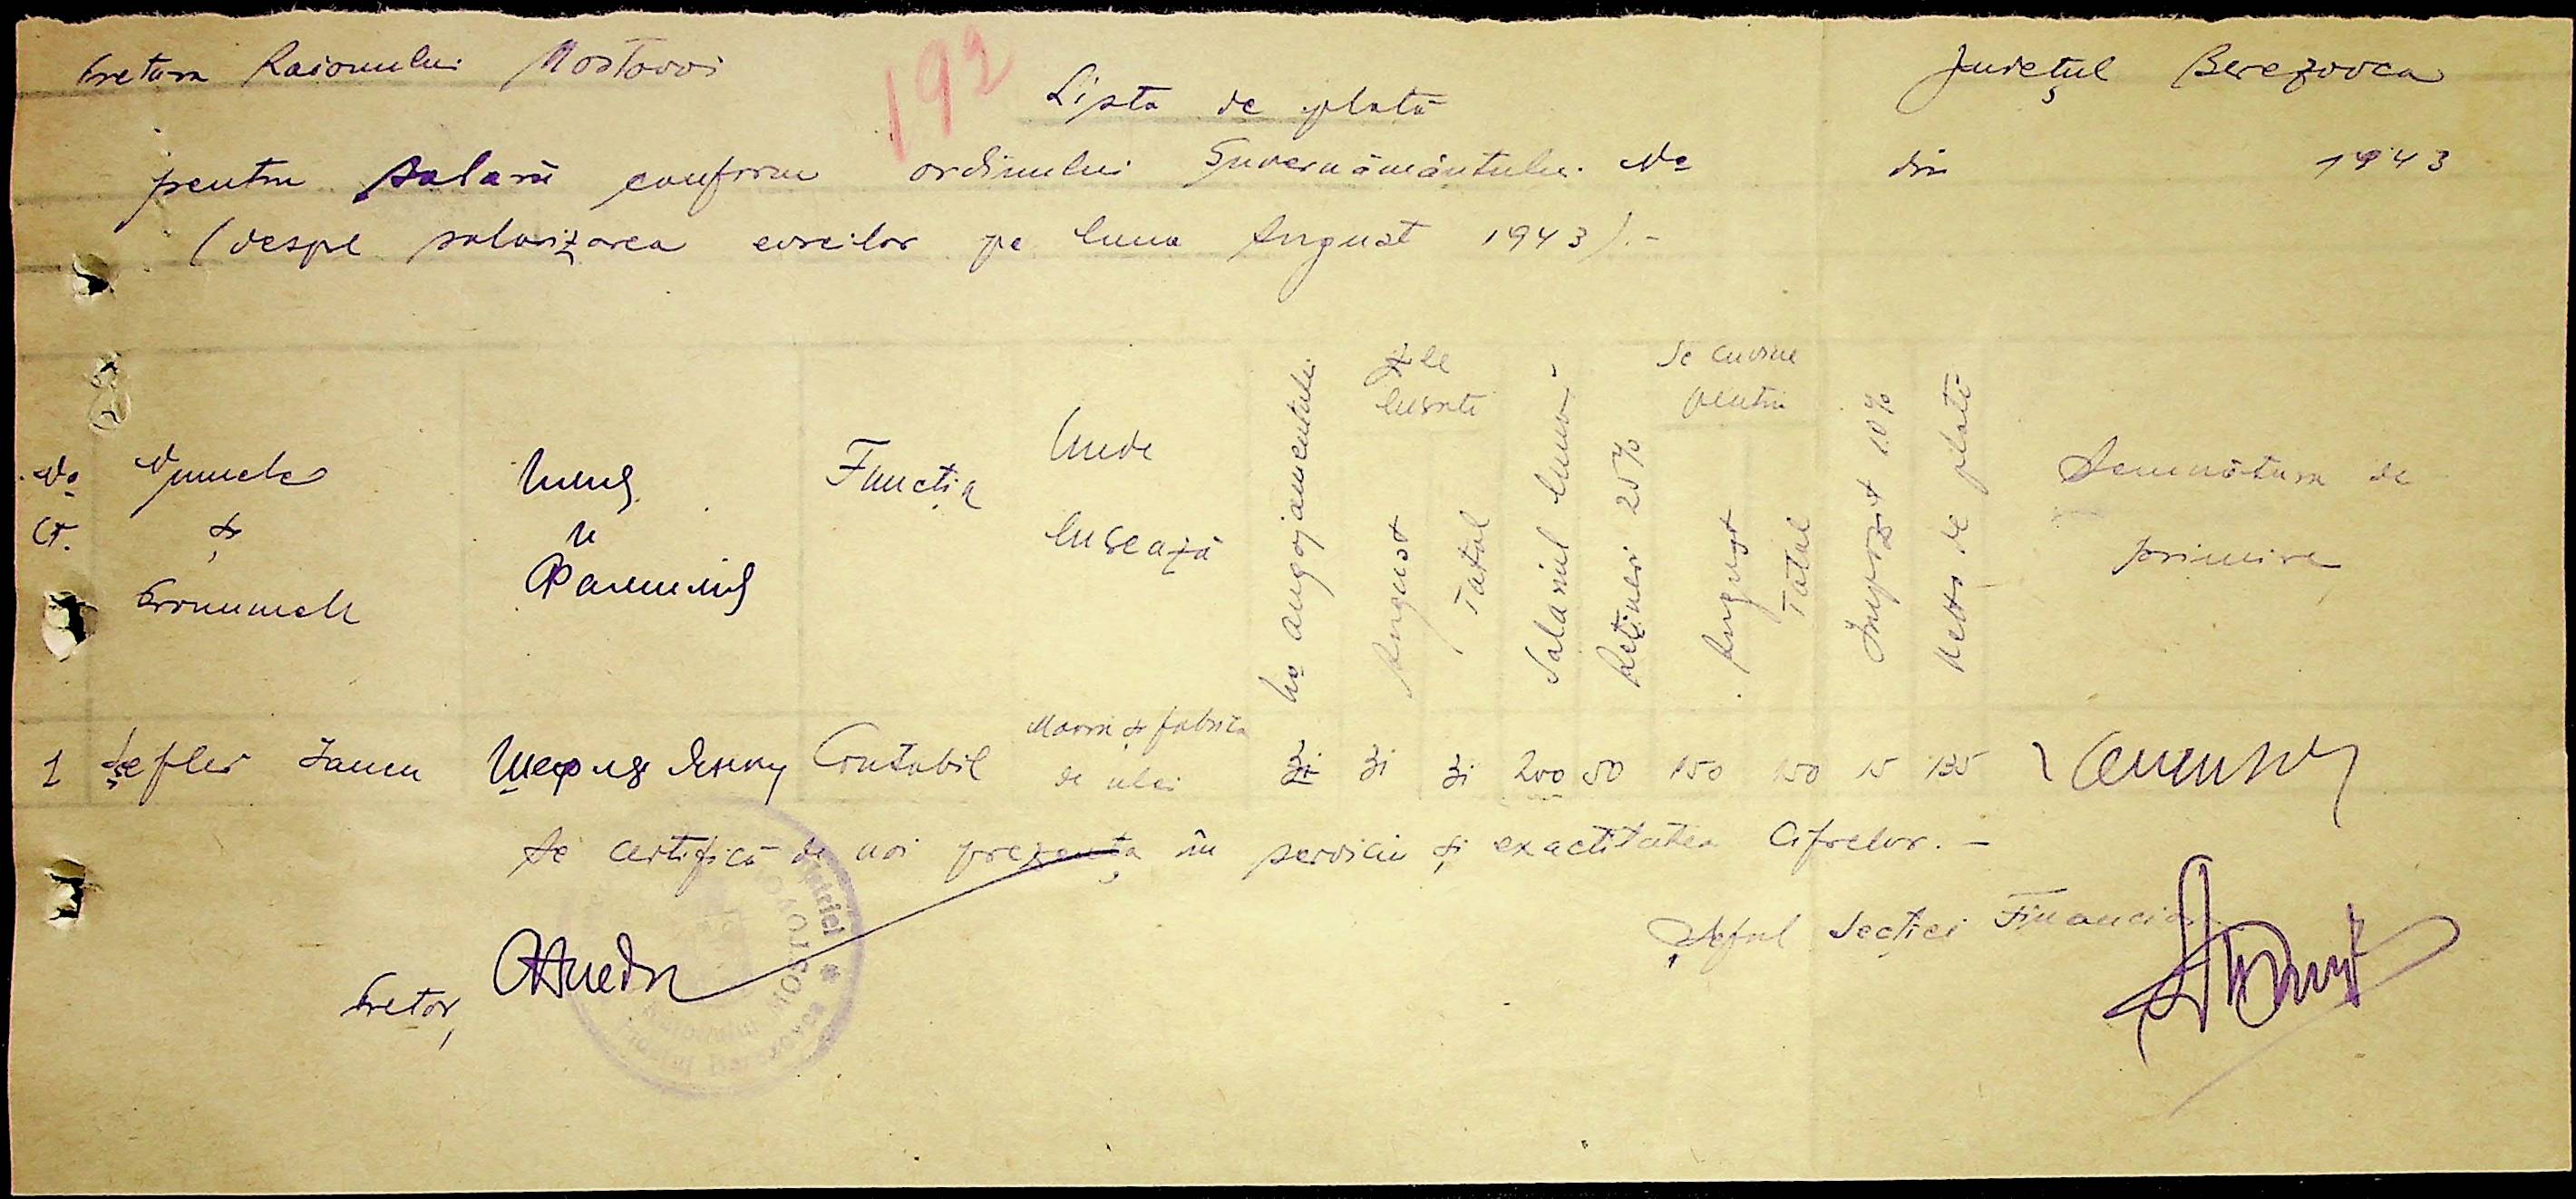 Pretura Raionului Mostovoi
192
Județul Berezovca
Lista de plată
pentru salarii conform ordinului Guvernământului No din 1943
(despre salarizarea evreilor pe luna August 1943).-
No Cr.
Numele și Pronumele
Имя и Фамилия
Funcția
Unde lucrează
No angajamentului
Zile lucrate
August
Total
Salariul lunar
Rețineri 25%
Se cuvine pentru
August
Total
Impozit 10%
Netto de plată
Semnătura de primire
1 Șefler Contabil Moara și fabrica de ulei 31 31 31 200 50 150 150 15 135
Se certifică de noi prezența în serviciu și exactitatea cifrelor.-
Șeful Secției Financiar
Pretor,
Pretriei * Raionului MOSTOVOI
Județul Berezovca